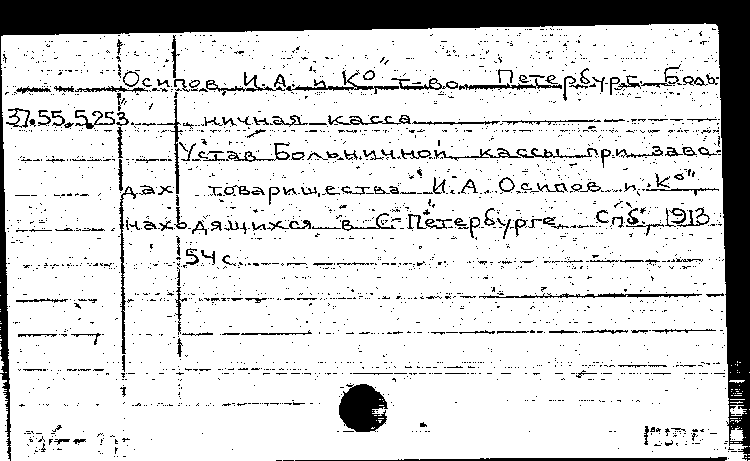 Осипов И.А. и К°", т-во. Петербург. Боль-
37.55.5.253 ничная касса
Устав Больничной кассы при заво-
дах товарищества "И.А. Осипов и К°",
находящихся в С-Петербурге. Спб., 1913
54 с.